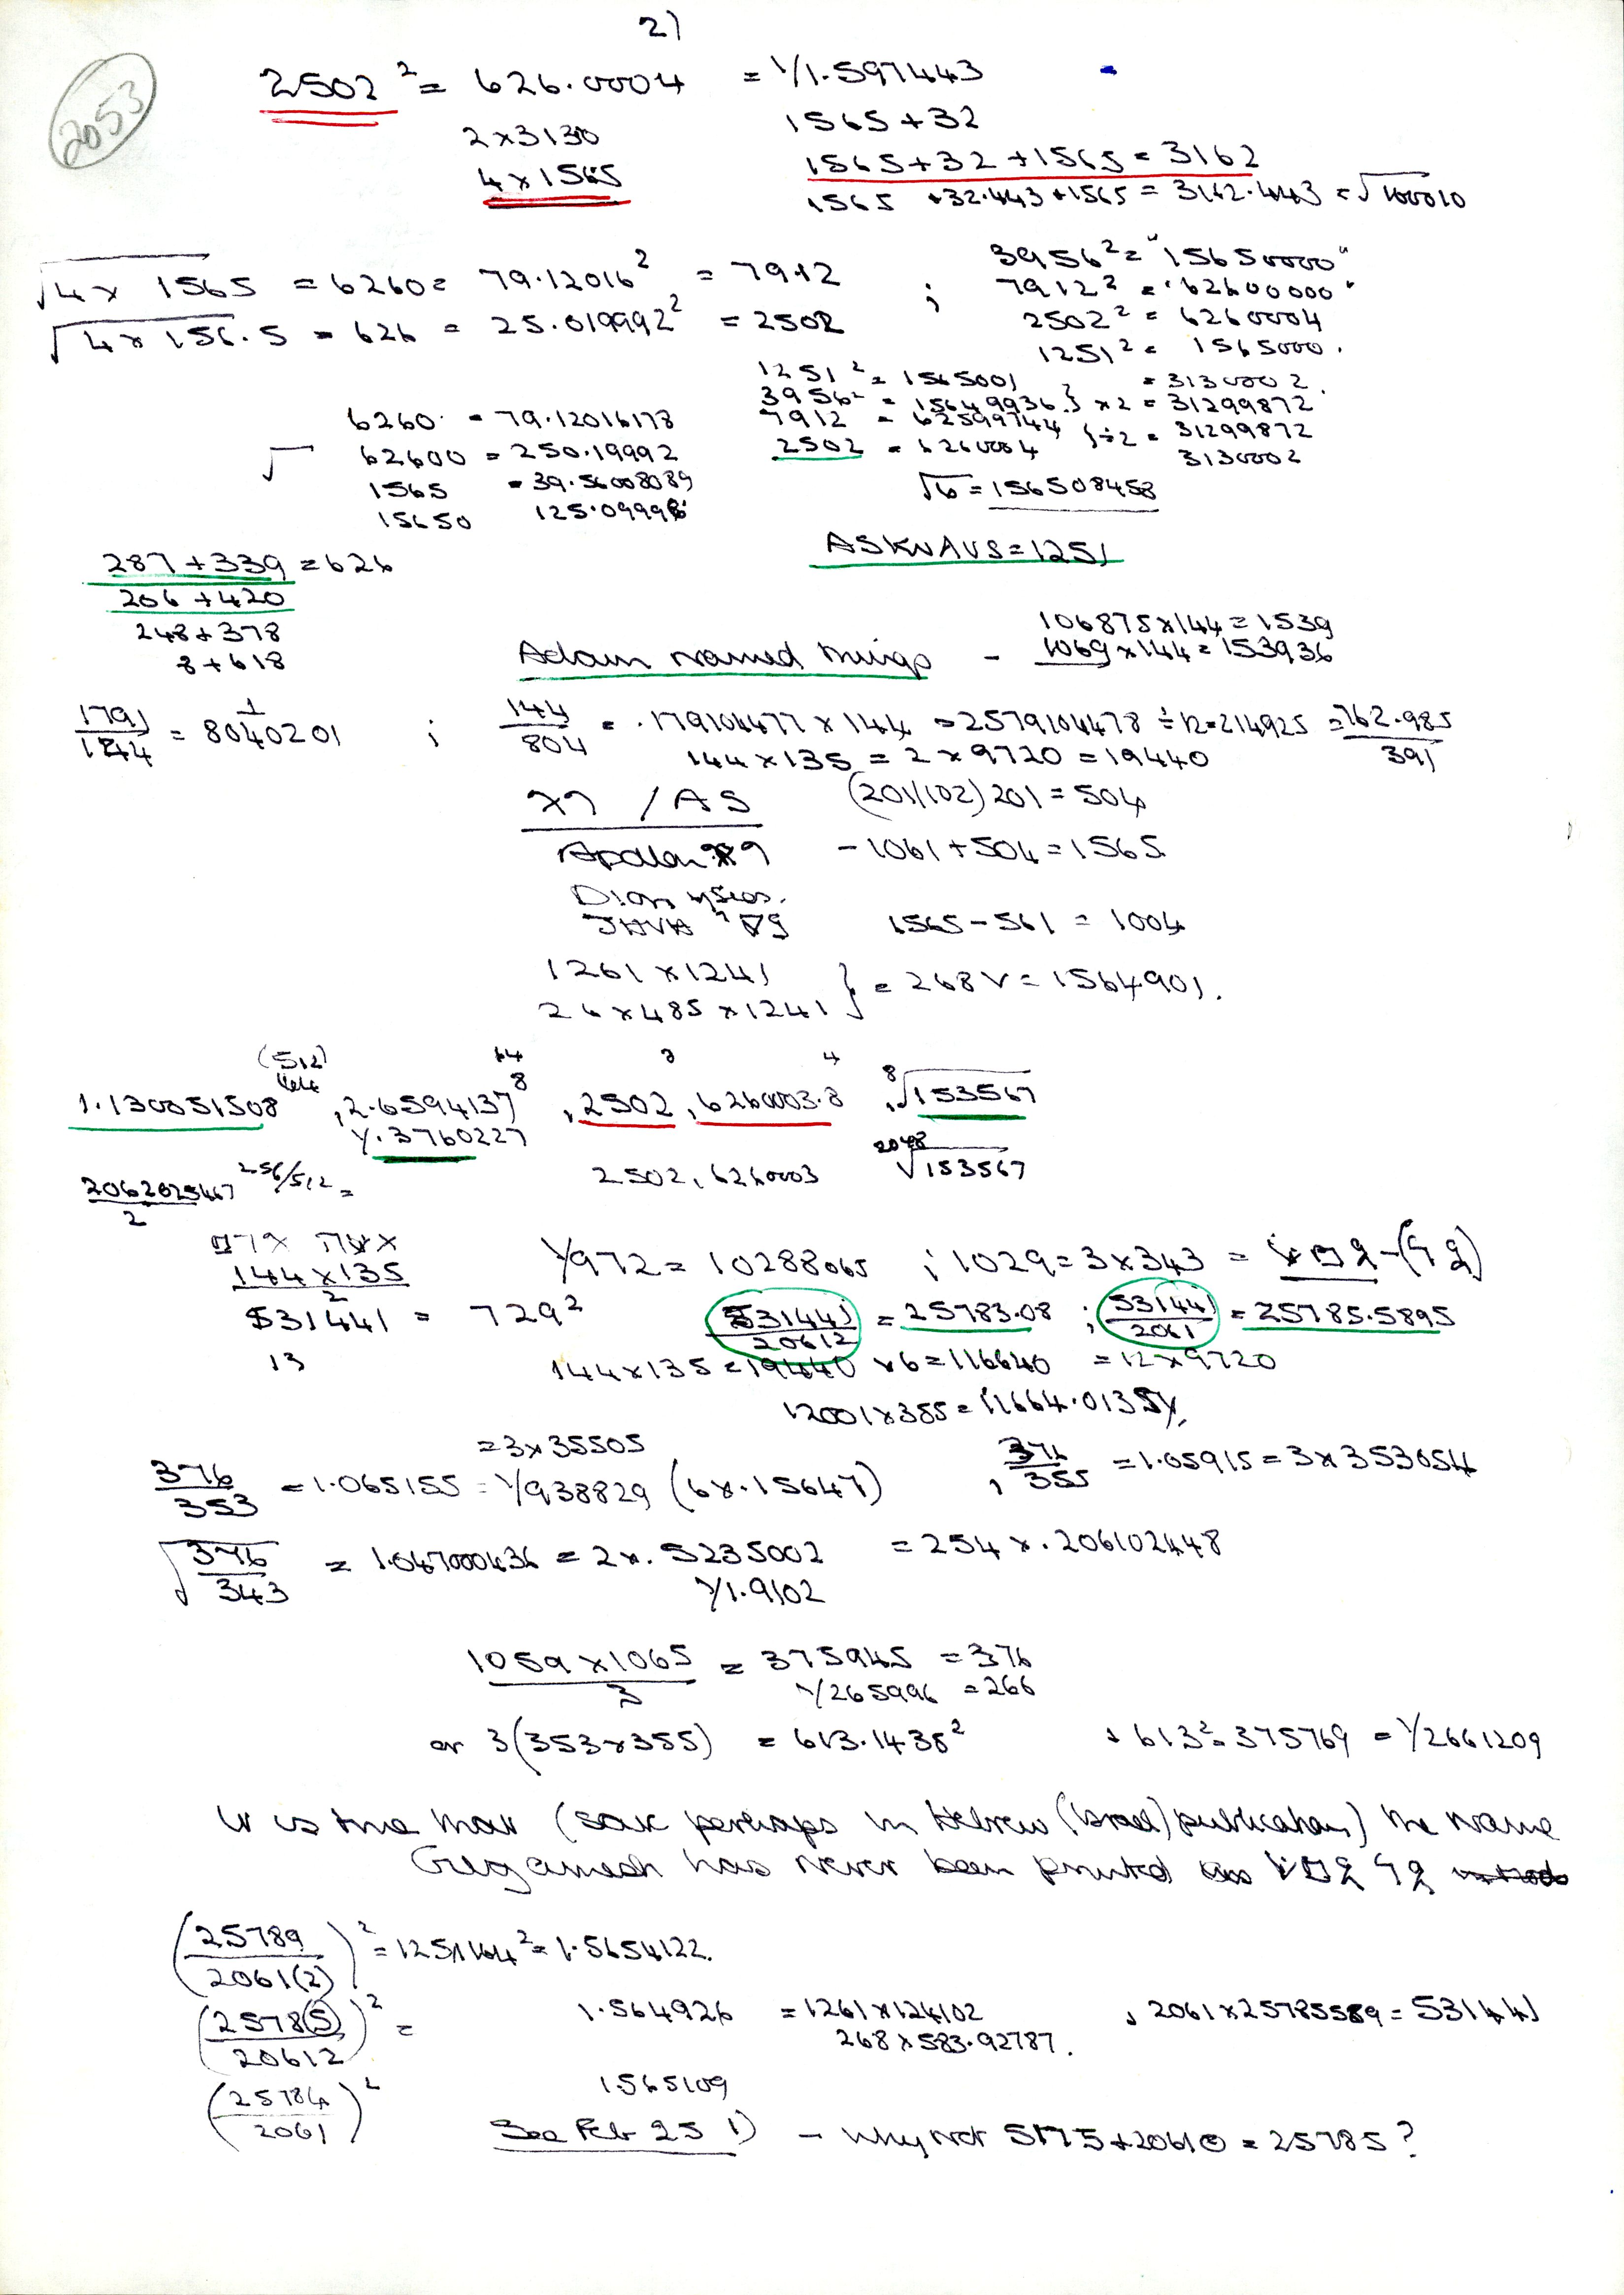 2)
2053
2502² = 626.0004 = 1/1.597443
2 x 3130
1565 + 32
4 x 1565
1565 + 32 + 1565 = 3162
1565 + 32.443 + 1565 = 3162.443 = √100010
√4 x 1565 = 6260 = 79.12016² = 7912 ; 3956² = "15650000"
7912² = "62600000"
√4 x 156.5 = 626 = 25.019992² = 2502
2502² = 6260004
1251² = 1565000.
1251² = 1565001 = 3130002.
3956² = 15649936 } x2 = 31299872
6260 = 79.12016178
7912 = 62599744 } ÷2 = 31299872
√ 62600 = 250.19992
2502 = 6260004
3130002
1565 = 39.56008089
√6 = 156508458
15650 125.09996
287 + 339 = 626
ASKNAVS = 1251
206 + 420
248 + 378
8 + 618
106875 x 144 = 1539
Adam named things - 1069 x 144 = 153936
1791/144 = 1/8040201 ; 144/804 = .179104477 x 144 = 2579104478 ÷ 12 = 214925 = 762.985/391
144 x 135 = 2 x 9720 = 19440
/ AS (201/102) 201 = 504
- 1061 + 504 = 1565
JHVH 1565 - 561 = 1004
1261 x 1241
26 x 485 x 1241 } = 268 v = 1564901.
(512)
64 8 4
1.130051508 , 2.6594137⁸ , 2502 , 6260003.8 , ⁸√153567
1/.3760227
2502, 6260003 ²⁰⁴⁸√153567
2062025467/2 ²⁵⁶/⁵¹² =
144 x 135
1/972 = 10288065 ; 1029 = 3 x 343 =
531441 = 729² 531441/20612 = 25783.08 ; 531441/2061 = 25785.5895
13
144 x 135 = 19440 x 6 = 116640 = 12 x 9720
= 3 x 35505
376/353 = 1.065155 = 1/938829 (6 x .15647) , 376/355 = 1.05915 = 3 x 353054
√376/343 = 1.047000436 = 2 x .5235002 = 254 x .206102448
1/1.9102
1059 x 1065/3 = 375945 = 376
1/265996 = 266
or 3(353 x 355) = 613.1438² , 613² = 375769 = 1/2661209
It is true that (save perhaps in Hebrew (Israel) publications) the name
Gilgamesh has never been printed as
(25789/2061(2))² = 1251164² = 1.5654122.
(2578(5)/20612)² = 1.564926 = 1261 x 124102 , 2061 x 25785589 = 531441
268 x 583.92787.
(25784/2061)² 1.565109
See Feb 25 1) - why not 5175 + 20610 = 25785?